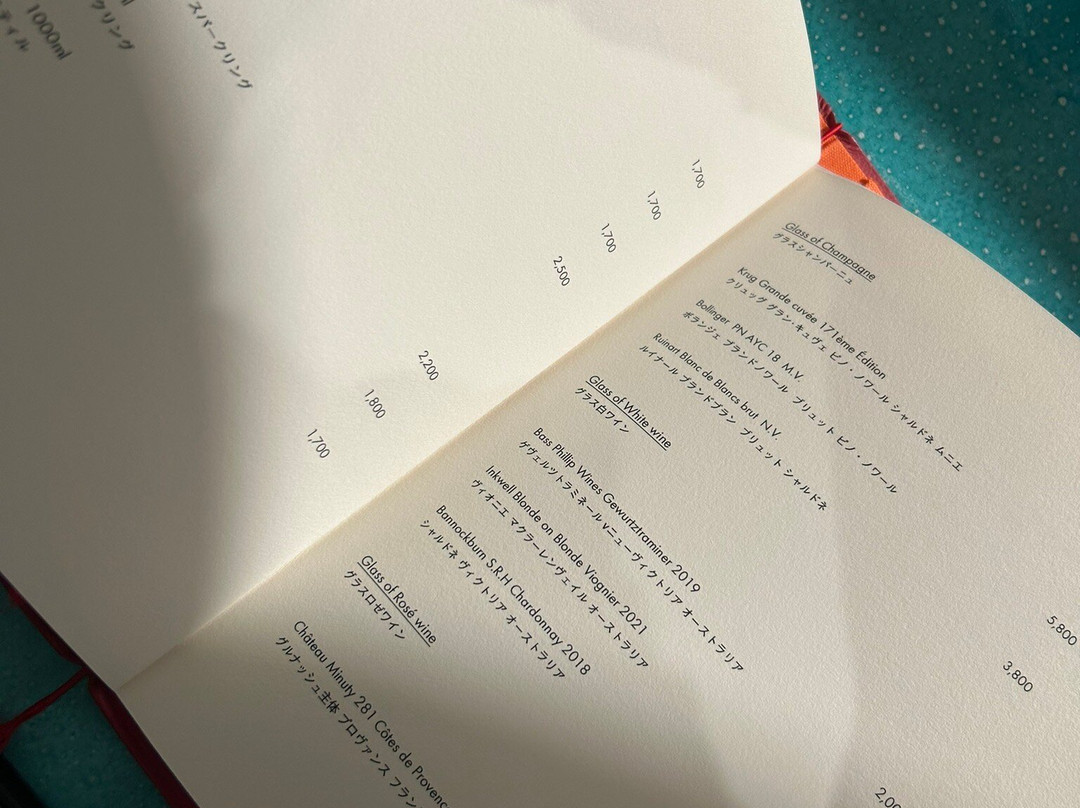 1000ml
スパークリング
1,700
1,700
1,700
2,500
2,200
1,800
1,700
Glass of Champagne
グラスシャンパーニュ
Krug Grande cuvée 171ème Édition
クリュッグ グラン・キュヴェ ピノ・ノワール シャルドネ ムニエ
5,800
Bollinger PN AYC 18 M.V.
ボランジェ ブランドノワール ブリュット ピノ・ノワール
3,800
Ruinart Blanc de Blancs brut N.V.
ルイナール ブランドブラン ブリュット シャルドネ
Glass of White wine
グラス白ワイン
Bass Phillip Wines Gewurtztraminer 2019
ゲヴェルツトラミネール vニューヴィクトリア オーストラリア
Inkwell Blonde on Blonde Viognier 2021
ヴィオニエ マクラーレンヴェイル オーストラリア
Bannockburn S.R.H Chardonnay 2018
シャルドネ ヴィクトリア オーストラリア
Glass of Rosé wine
グラスロゼワイン
Château Minuty 281 Côtes de Provenc
グルナッシュ主体 プロヴァンス フラン